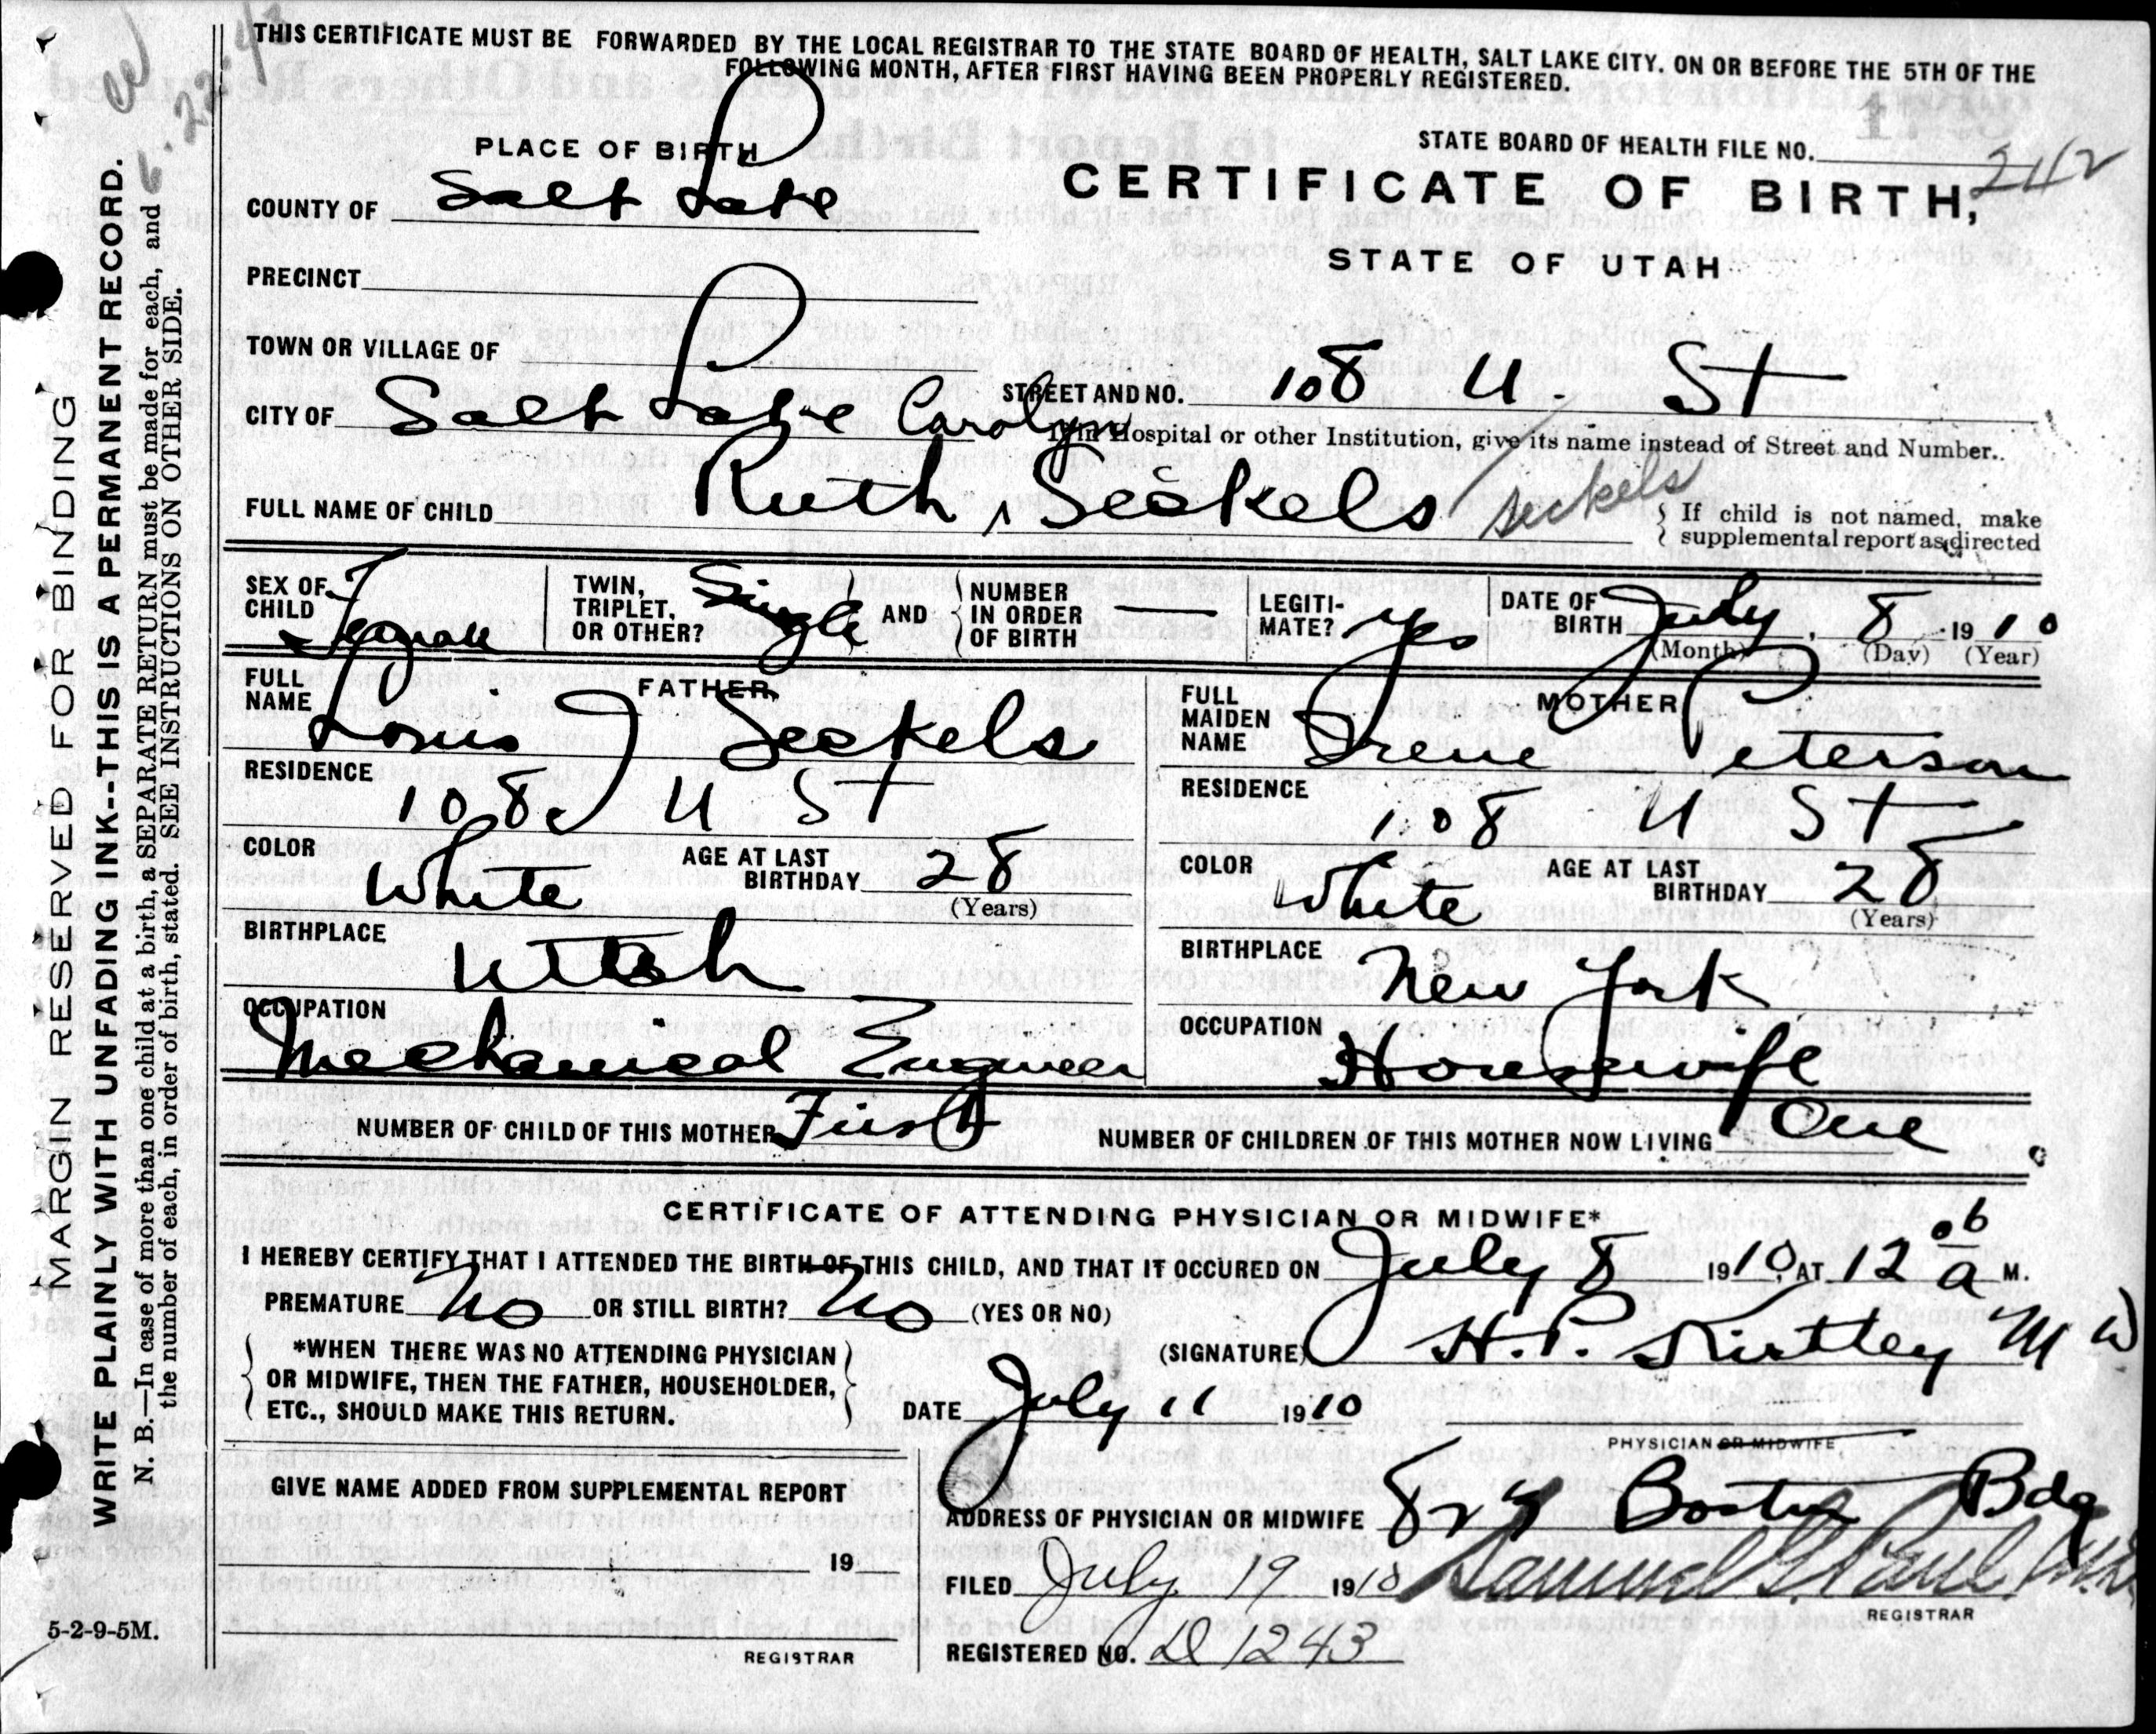 THIS CERTIFICATE MUST BE FORWARDED BY THE LOCAL REGISTRAR TO THE STATE BOARD OF HEALTH, SALT LAKE CITY. ON OR BEFORE THE 5TH OF THE
FOLLOWING MONTH, AFTER FIRST HAVING BEEN PROPERLY REGISTERED.
PLACE OF BIRTH
STATE BOARD OF HEALTH FILE NO. 242
COUNTY OF Salt Lake
CERTIFICATE OF BIRTH,
STATE OF UTAH
PRECINCT
TOWN OR VILLAGE OF
CITY OF Salt Lake STREET AND NO. 108 U. St
If in Hospital or other Institution, give its name instead of Street and Number.
Carolyn
FULL NAME OF CHILD Ruth ^ Seckels / Seckels
If child is not named, make
supplemental report as directed
SEX OF CHILD Female TWIN, TRIPLET, OR OTHER? Single AND NUMBER IN ORDER OF BIRTH — LEGITI-MATE? Yes DATE OF BIRTH July 8 1910
(Month) (Day) (Year)
FATHER
FULL NAME Louis J Seckels
RESIDENCE 108 U St
COLOR White AGE AT LAST BIRTHDAY 28
(Years)
BIRTHPLACE Utah
OCCUPATION Mechanical Engineer
MOTHER
FULL MAIDEN NAME Irene Peterson
RESIDENCE 108 U St
COLOR White AGE AT LAST BIRTHDAY 28
(Years)
BIRTHPLACE New York
OCCUPATION Housewife
NUMBER OF CHILD OF THIS MOTHER First NUMBER OF CHILDREN OF THIS MOTHER NOW LIVING One
CERTIFICATE OF ATTENDING PHYSICIAN OR MIDWIFE*
I HEREBY CERTIFY THAT I ATTENDED THE BIRTH OF THIS CHILD, AND THAT IT OCCURED ON July 8 1910, AT 12 06 a M.
PREMATURE No OR STILL BIRTH? No (YES OR NO)
*WHEN THERE WAS NO ATTENDING PHYSICIAN
OR MIDWIFE, THEN THE FATHER, HOUSEHOLDER,
ETC., SHOULD MAKE THIS RETURN.
(SIGNATURE) H. P. Kirtley M D
DATE July 11 1910
PHYSICIAN OR MIDWIFE
GIVE NAME ADDED FROM SUPPLEMENTAL REPORT
19
REGISTRAR
ADDRESS OF PHYSICIAN OR MIDWIFE Boston Bdg
FILED July 19 1910 Samuel G. Paul
REGISTRAR
REGISTERED NO. D 1243
MARGIN RESERVED FOR BINDING
WRITE PLAINLY WITH UNFADING INK--THIS IS A PERMANENT RECORD.
N. B.—In case of more than one child at a birth, a SEPARATE RETURN must be made for each, and
the number of each, in order of birth, stated. SEE INSTRUCTIONS ON OTHER SIDE.
5-2-9-5M.